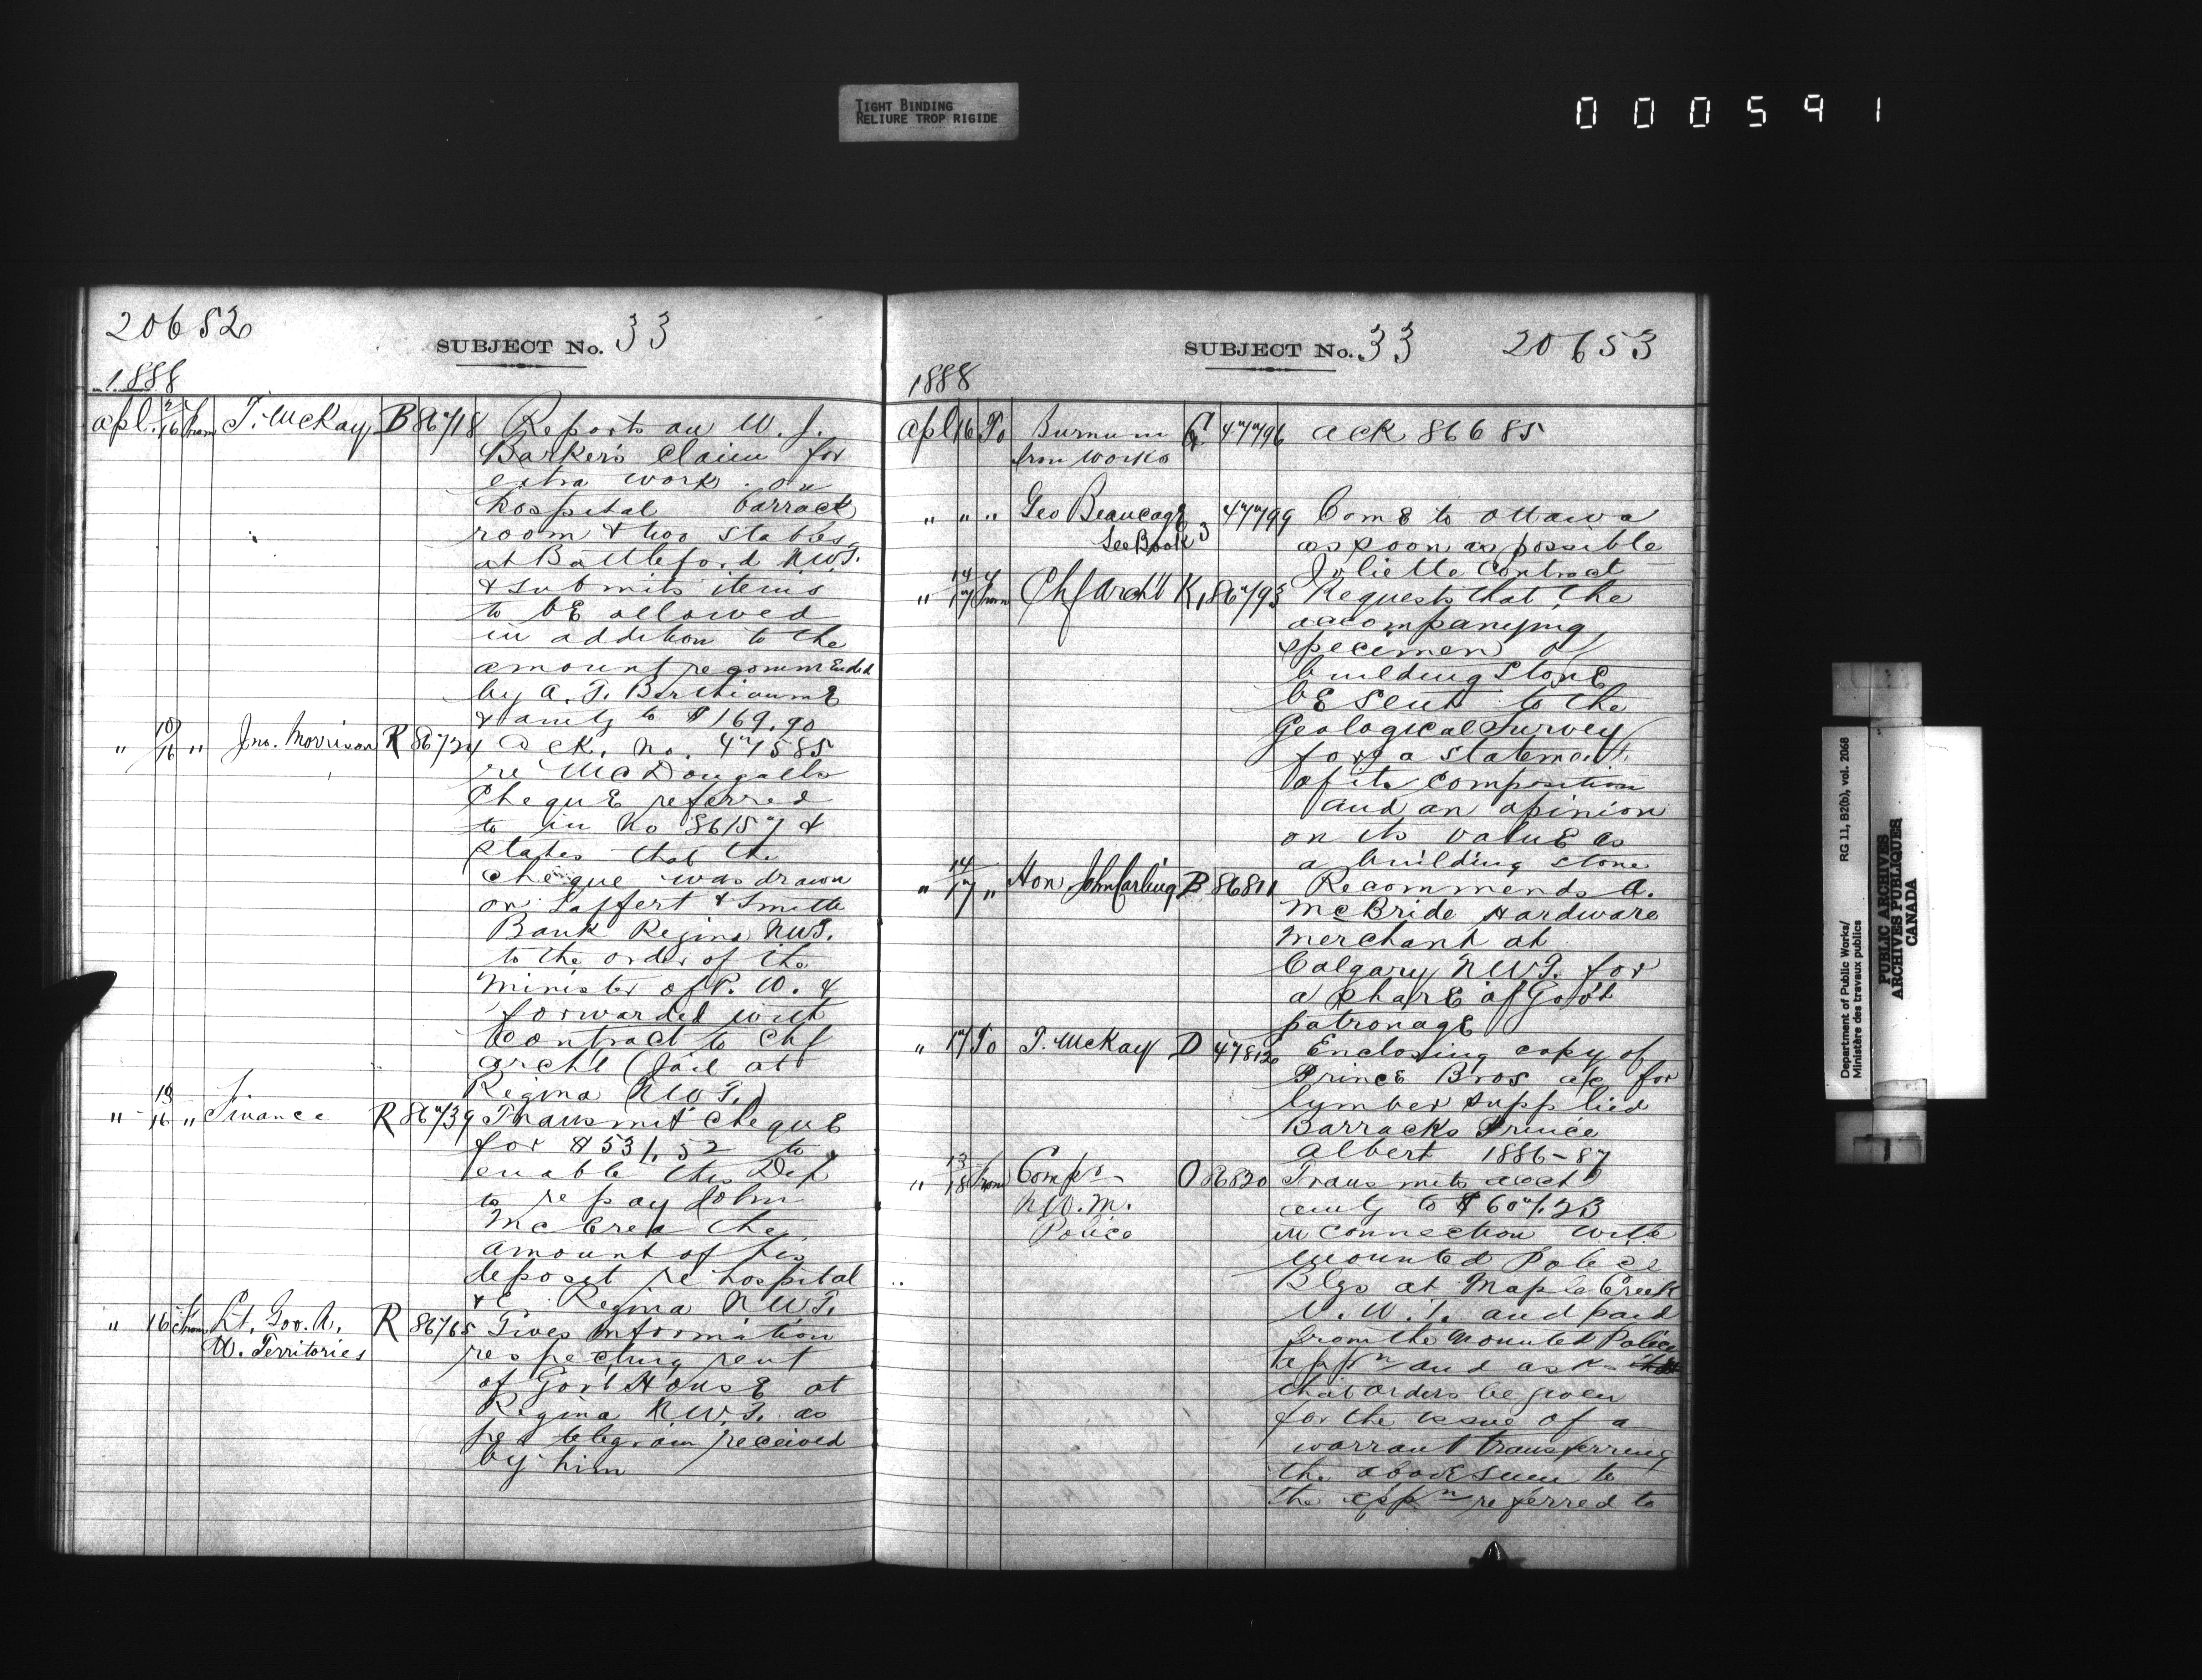 TIGHT BINDING
RELIURE TROP RIGIDE
000591
20652
SUBJECT No. 33
1888
Apl. 7/16 from T. McKay B 86718 Reports on W. J.
Barker's claim for
extra work on
hospital barrack
room & two stables
at Battleford NWT.
& submits items
to be allowed
in addition to the
amount recommended
by A. T. Berthiaume
& amtg to $169.90
" 10/16 " Jno. Morrison R 86724 Ack. no. 47585
re McDougall's
cheque referred
to in No 86157 &
states that the
cheque was drawn
on Laffert & Smith
Bank Regina NWT.
to the order of the
Minister of P. W. &
forwarded with
Contract to Chf
Archt (Jail at
Regina NWT.)
" 13/16 " Finance R 86739 Transmit cheque
for $531.52 to
enable this Dep
to repay John
McCrea the
amount of his
deposit re hospital
&c Regina NWT.
" 16 from Lt. Gov. N. R 86765 Gives information
W. Territories respecting rent
of Govt House at
Regina N.W.T. as
per telegram received
by him
SUBJECT No. 33 20653
1888
Apl 16 To Burnum G 47796 Ack 86685
Iron Works
" " " Geo Beaucage 3 47799 Come to Ottawa
See Book as soon as possible
Joliette Contract
" 14/17 from Chf Archt K, 86793 Requests that the
accompanying
specimen of
building stone
be sent to the
Geological Survey
for a statement
of its composition
and an opinion
on its value as
a building stone
" 14/17 " Hon John Carling B 86811 Recommends A.
McBride Hardware
Merchant at
Calgary NWT. for
a share of Gov't
patronage
" 17 To T. McKay D 47812 Enclosing copy of
Prince Bros a/c for
lumber supplied
Barracks Prince
Albert 1886-87
" 13/18 from Compr O 86820 Transmits acct
N.W.M. amtg to $607.23
Police in connection with
Mounted Police
Blgs at Maple Creek
N.W.T. and paid
from the Mounted Police
appn and asks
that orders be given
for the issue of a
warrant transferring
the above sum to
the appn referred to
Department of Public Works/ RG 11, B2(b), vol. 2068
Ministère des travaux publics
PUBLIC ARCHIVES
ARCHIVES PUBLIQUES
CANADA